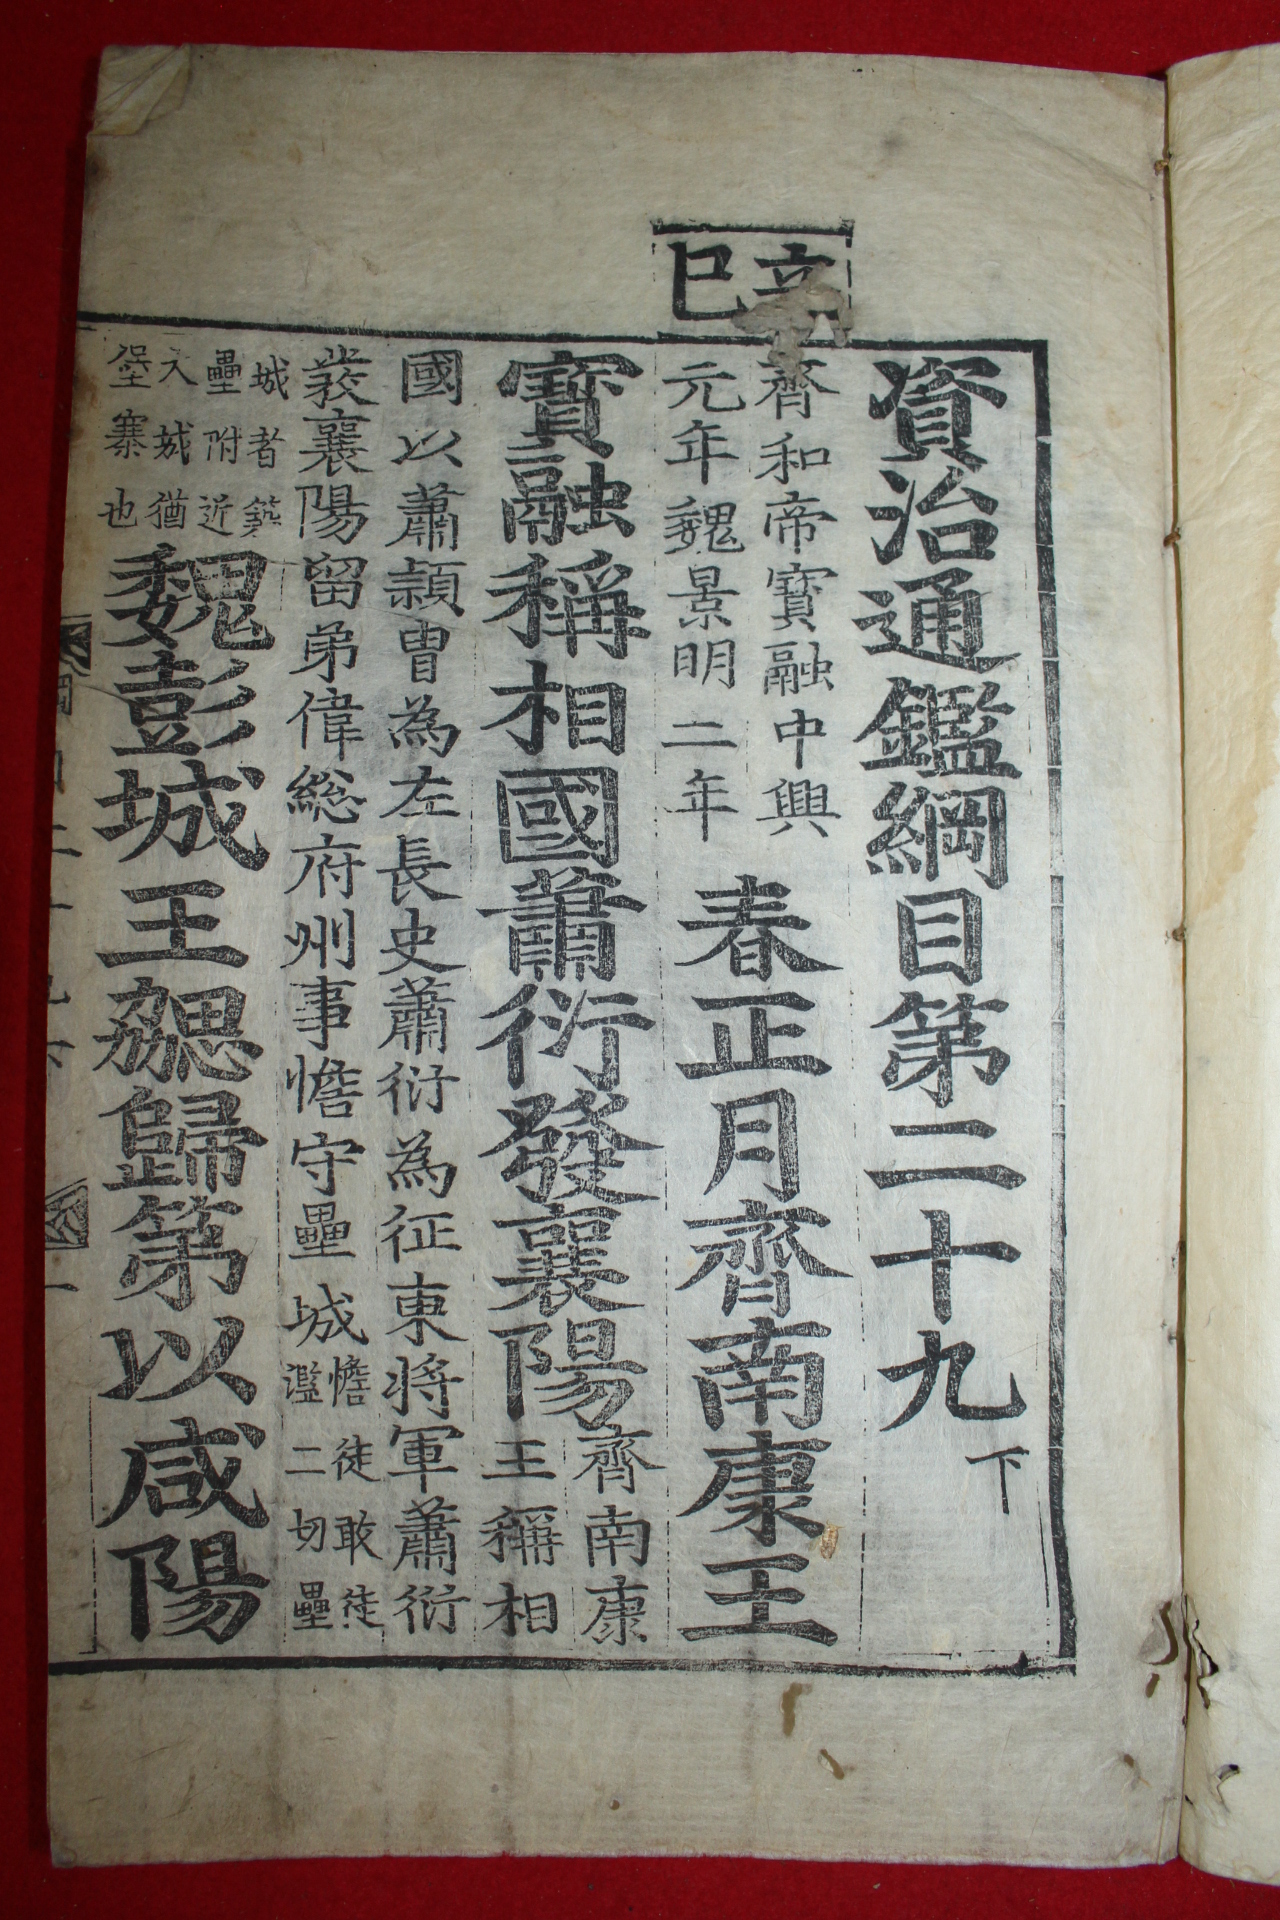 辛巳
資治通鑑綱目第二十九下
齊和帝寶融中興
元年魏景明二年
春正月齊南康王
寶融稱相國蕭衍發襄陽
齊南康
王稱相
國以蕭頴胄為左長史蕭衍為征東將軍蕭衍
發襄陽留弟偉総府州事憺守壘城
憺徒敢徒
濫二切壘
城者築
壘附近
大城猶
堡寨也
魏彭城王勰歸第以咸陽